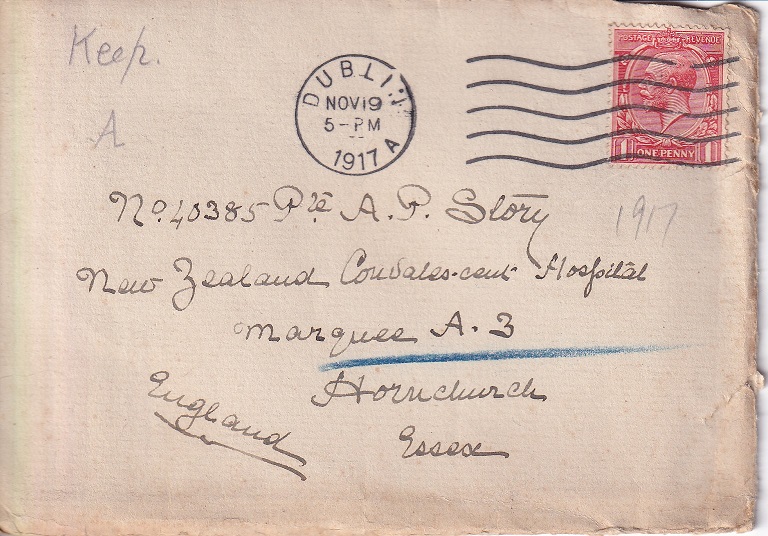 Keep.
A
DUBLIN
NOV 19
5-PM
1917 A
POSTAGE REVENUE
1 ONE PENNY 1
No. 40385 Pte A. P. Story
1917
New Zealand Convales-cent Hospital
Marquee A. 3
Hornchurch
England
Essex